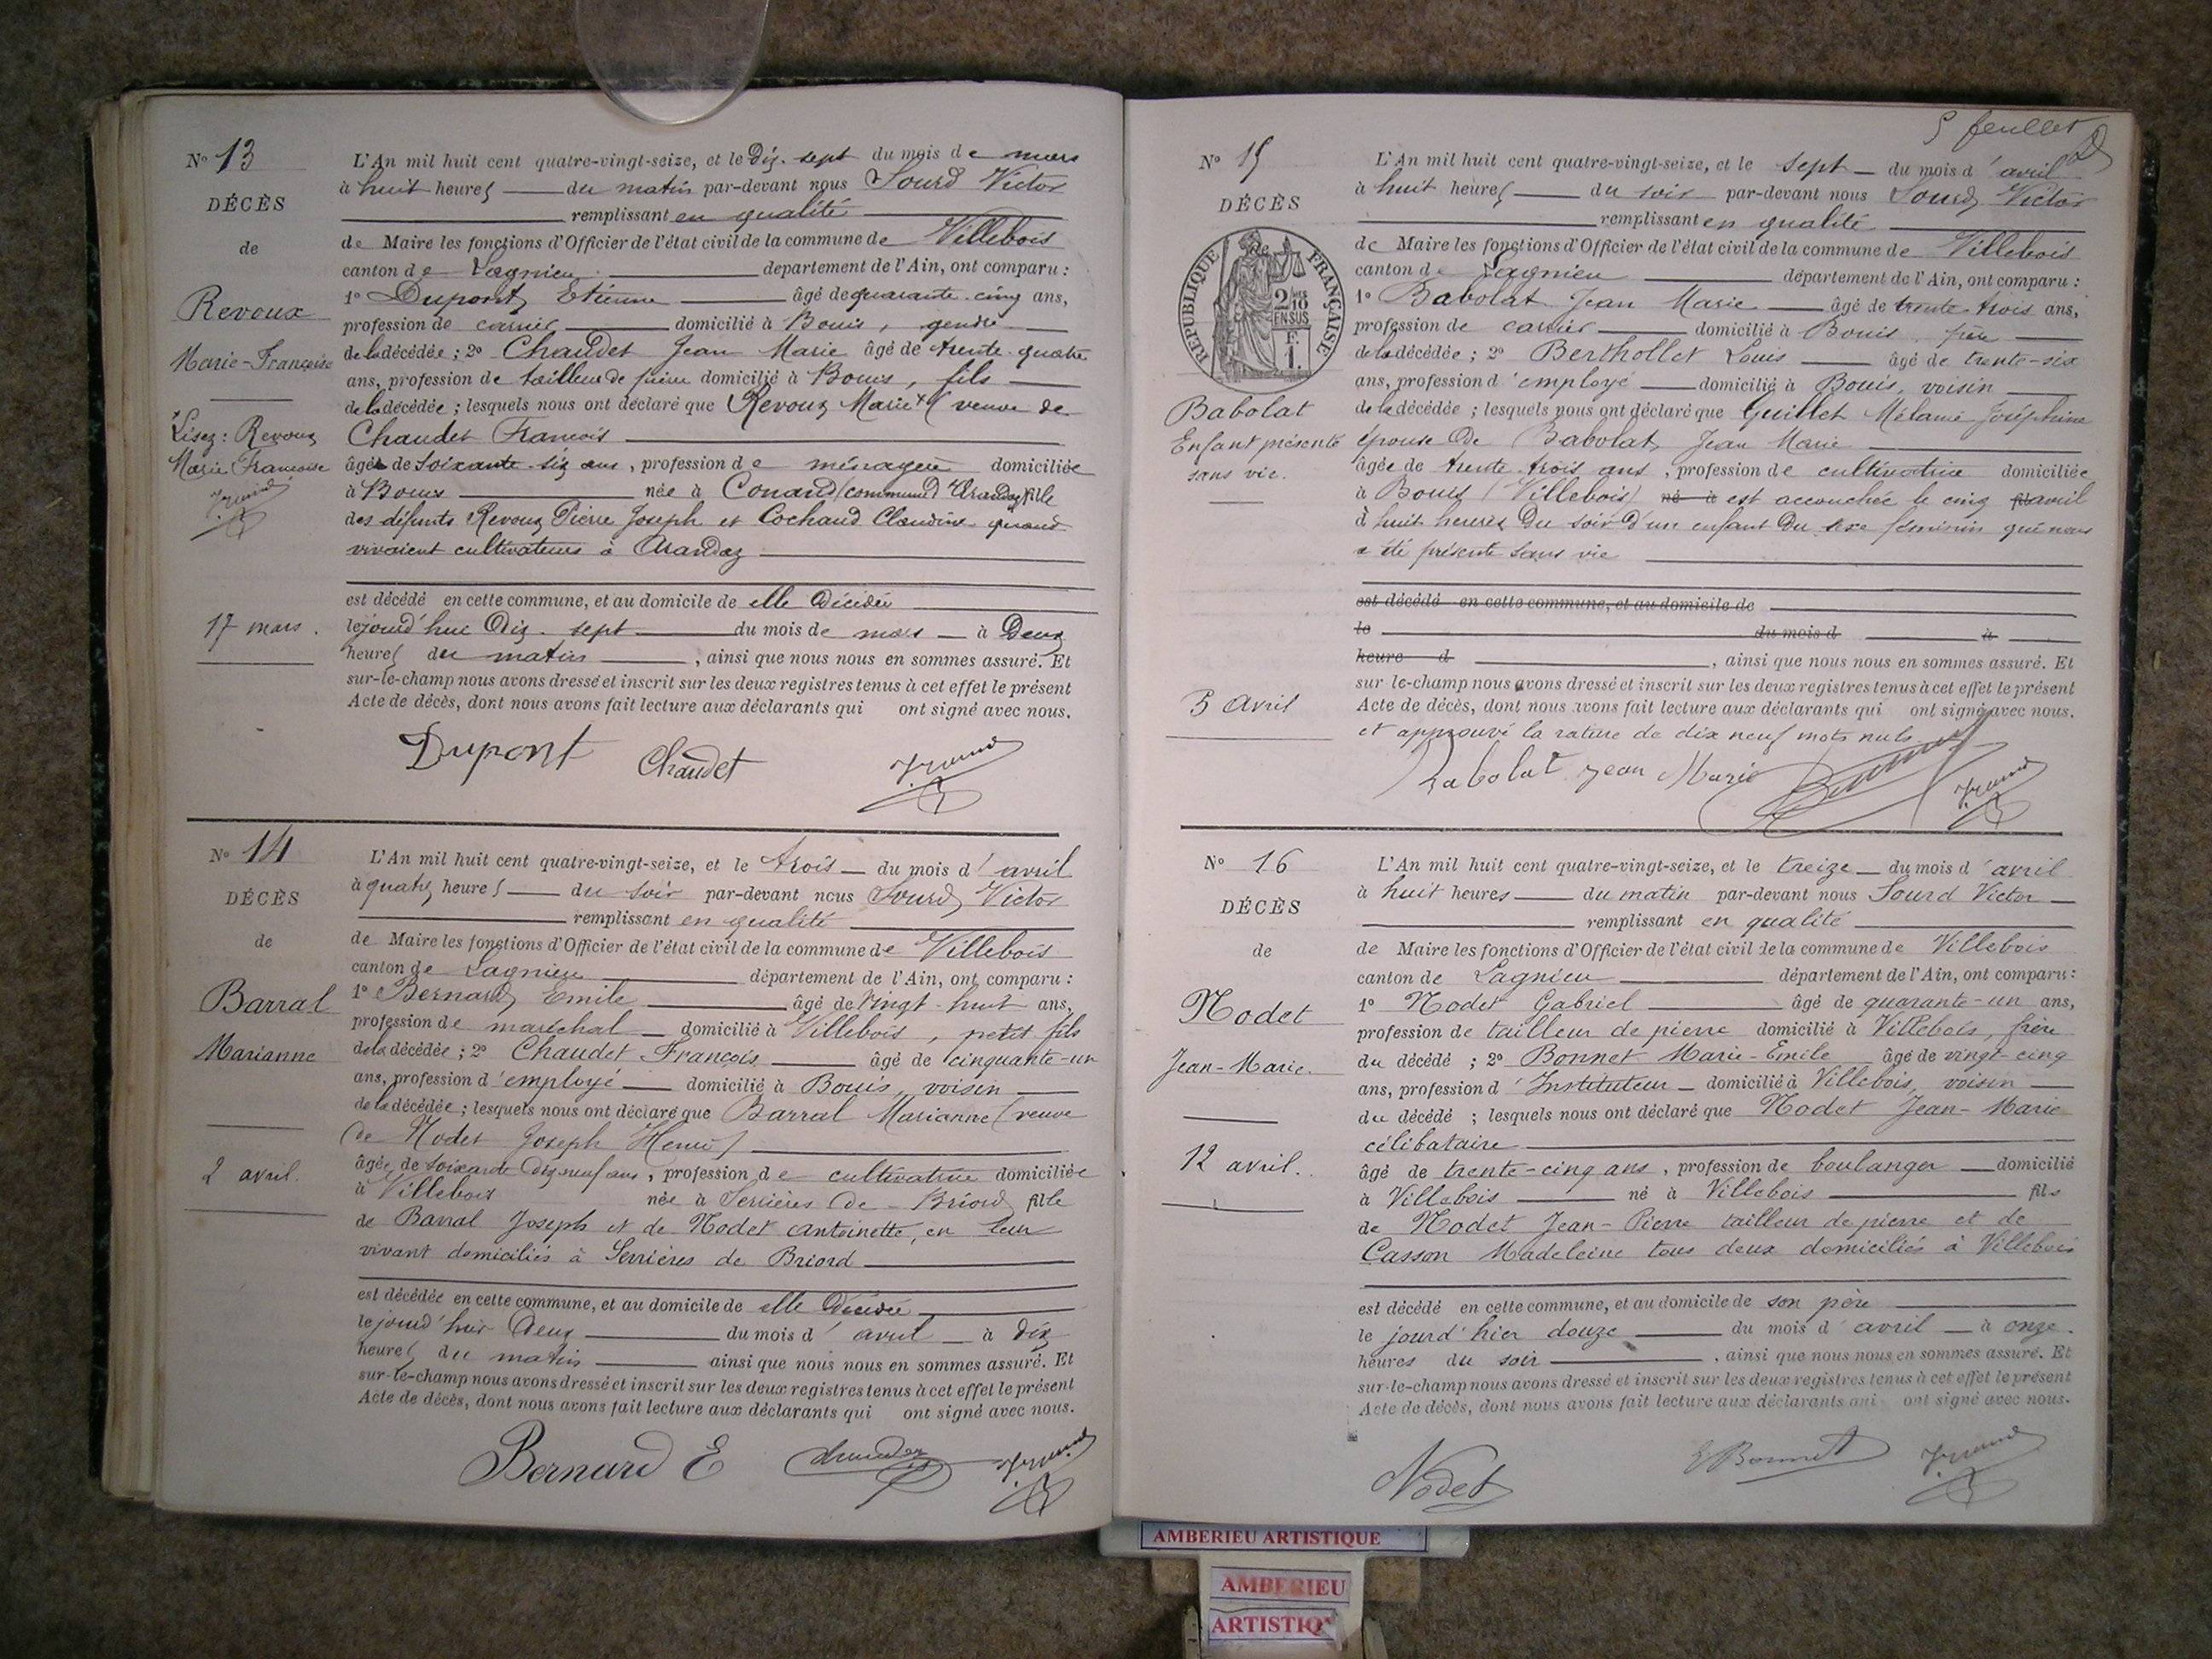 N° 13
DÉCÈS
de
Revoux
Marie-Françoise
Lisez : Revoux
Marie Francoise
17 mars.
L'An mil huit cent quatre-vingt-seize, et le Dix-sept du mois de mars
à huit heures du matin par-devant nous Sourd Victor
remplissant en qualité
de Maire les fonctions d'Officier de l'état civil de la commune de Villebois
canton de Lagnieu département de l'Ain, ont comparu :
1° Dupont Etienne âgé de quarante-cinq ans,
profession de carrier domicilié à Bouis, gendre
de la décédée ; 2° Chaudet Jean Marie âgé de trente-quatre
ans, profession de tailleur de pierre domicilié à Bouis, fils
de la décédée ; lesquels nous ont déclaré que Revoux Marie + ( veuve de
Chaudet Francois
âgée de soixante-six ans, profession de ménagère domiciliée
à Bouis née à Conand (commune) d'Arandaz fille
des défunts Revoux Pierre Joseph et Cochaud Claudine quand
vivaient cultivateurs à Arandaz
est décédé en cette commune, et au domicile de elle décédée
le jourd'hui Dix-sept du mois de mars à Deux
heures du matin, ainsi que nous nous en sommes assuré. Et
sur-le-champ nous avons dressé et inscrit sur les deux registres tenus à cet effet le présent
Acte de décès, dont nous avons fait lecture aux déclarants qui ont signé avec nous.
Dupont Chaudet
N° 14
DÉCÈS
de
Barral
Marianne
2 avril.
L'An mil huit cent quatre-vingt-seize, et le trois du mois d'avril
à quatre heures du soir par-devant nous Sourd Victor
remplissant en qualité
de Maire les fonctions d'Officier de l'état civil de la commune de Villebois
canton de Lagnieu département de l'Ain, ont comparu :
1° Bernard Emile âgé de vingt-huit ans,
profession de maréchal domicilié à Villebois, petit fils
de la décédée ; 2° Chaudet François âgé de cinquante-un
ans, profession d'employé domicilié à Bouis, voisin
de la décédée ; lesquels nous ont déclaré que Barral Marianne (veuve
de Nodet Joseph Henri)
âgée de soixante Dix neuf ans, profession de cultivatrice domiciliée
à Villebois née à Serrières de Briord fille
de Barral Joseph et de Nodet Antoinette, en leur
vivant domiciliés à Serrières de Briord
est décédée en cette commune, et au domicile de elle décédée
le jourd'hier Deux du mois d'avril à dix
heures du matin ainsi que nous nous en sommes assuré. Et
sur-le-champ nous avons dressé et inscrit sur les deux registres tenus à cet effet le présent
Acte de décès, dont nous avons fait lecture aux déclarants qui ont signé avec nous.
Bernard E
5 feuillet
N° 15
DÉCÈS
de
RÉPUBLIQUE FRANÇAISE
2/10
EN SUS
F.
1.
Babolat
Enfant présenté
sans vie.
5 Avril
L'An mil huit cent quatre-vingt-seize, et le sept du mois d'avril
à huit heures du soir par-devant nous Sourd Victor
remplissant en qualité
de Maire les fonctions d'Officier de l'état civil de la commune de Villebois
canton de Lagnieu département de l'Ain, ont comparu :
1° Babolat Jean Marie âgé de trente trois ans,
profession de carrier domicilié à Bouis père
de la décédée ; 2° Berthollet Louis âgé de trente-six
ans, profession d'employé domicilié à Bouis, voisin
de la décédée ; lesquels nous ont déclaré que Guillet Mélanie Joséphine
épouse de Babolat Jean Marie
âgée de trente-trois ans, profession de cultivatrice domiciliée
à Bouis (Villebois) né à est accouchée le cinq fils avril
à huit heures du soir d'un enfant du sexe féminin qui nous
a été présenté sans vie
est décédé en cette commune, et au domicile de
le du mois d à
heure d , ainsi que nous nous en sommes assuré. Et
sur-le-champ nous avons dressé et inscrit sur les deux registres tenus à cet effet le présent
Acte de décès, dont nous avons fait lecture aux déclarants qui ont signé avec nous.
et approuvé la rature de dix neuf mots nuls
Babolat Jean Marie
N° 16
DÉCÈS
de
Nodet
Jean-Marie.
12 avril.
L'An mil huit cent quatre-vingt-seize, et le treize du mois d'avril
à huit heures du matin par-devant nous Sourd Victor
remplissant en qualité
de Maire les fonctions d'Officier de l'état civil de la commune de Villebois
canton de Lagnieu département de l'Ain, ont comparu :
1° Nodet Gabriel âgé de quarante-un ans,
profession de tailleur de pierre domicilié à Villebois, frère
du décédé ; 2° Bonnet Marie-Emile âgé de vingt-cinq
ans, profession d'Instituteur domicilié à Villebois, voisin
du décédé ; lesquels nous ont déclaré que Nodet Jean-Marie
célibataire
âgé de trente-cinq ans, profession de boulanger domicilié
à Villebois né à Villebois fils
de Nodet Jean-Pierre tailleur de pierre et de
Casson Madeleine tous deux domiciliés à Villebois
est décédé en cette commune, et au domicile de son père
le jourd'hier douze du mois d'avril à onze
heures du soir, ainsi que nous nous en sommes assuré. Et
sur-le-champ nous avons dressé et inscrit sur les deux registres tenus à cet effet le présent
Acte de décès, dont nous avons fait lecture aux déclarants qui ont signé avec nous.
Nodet E Bonnet
AMBERIEU ARTISTIQUE
AMBERIEU
ARTISTIQ